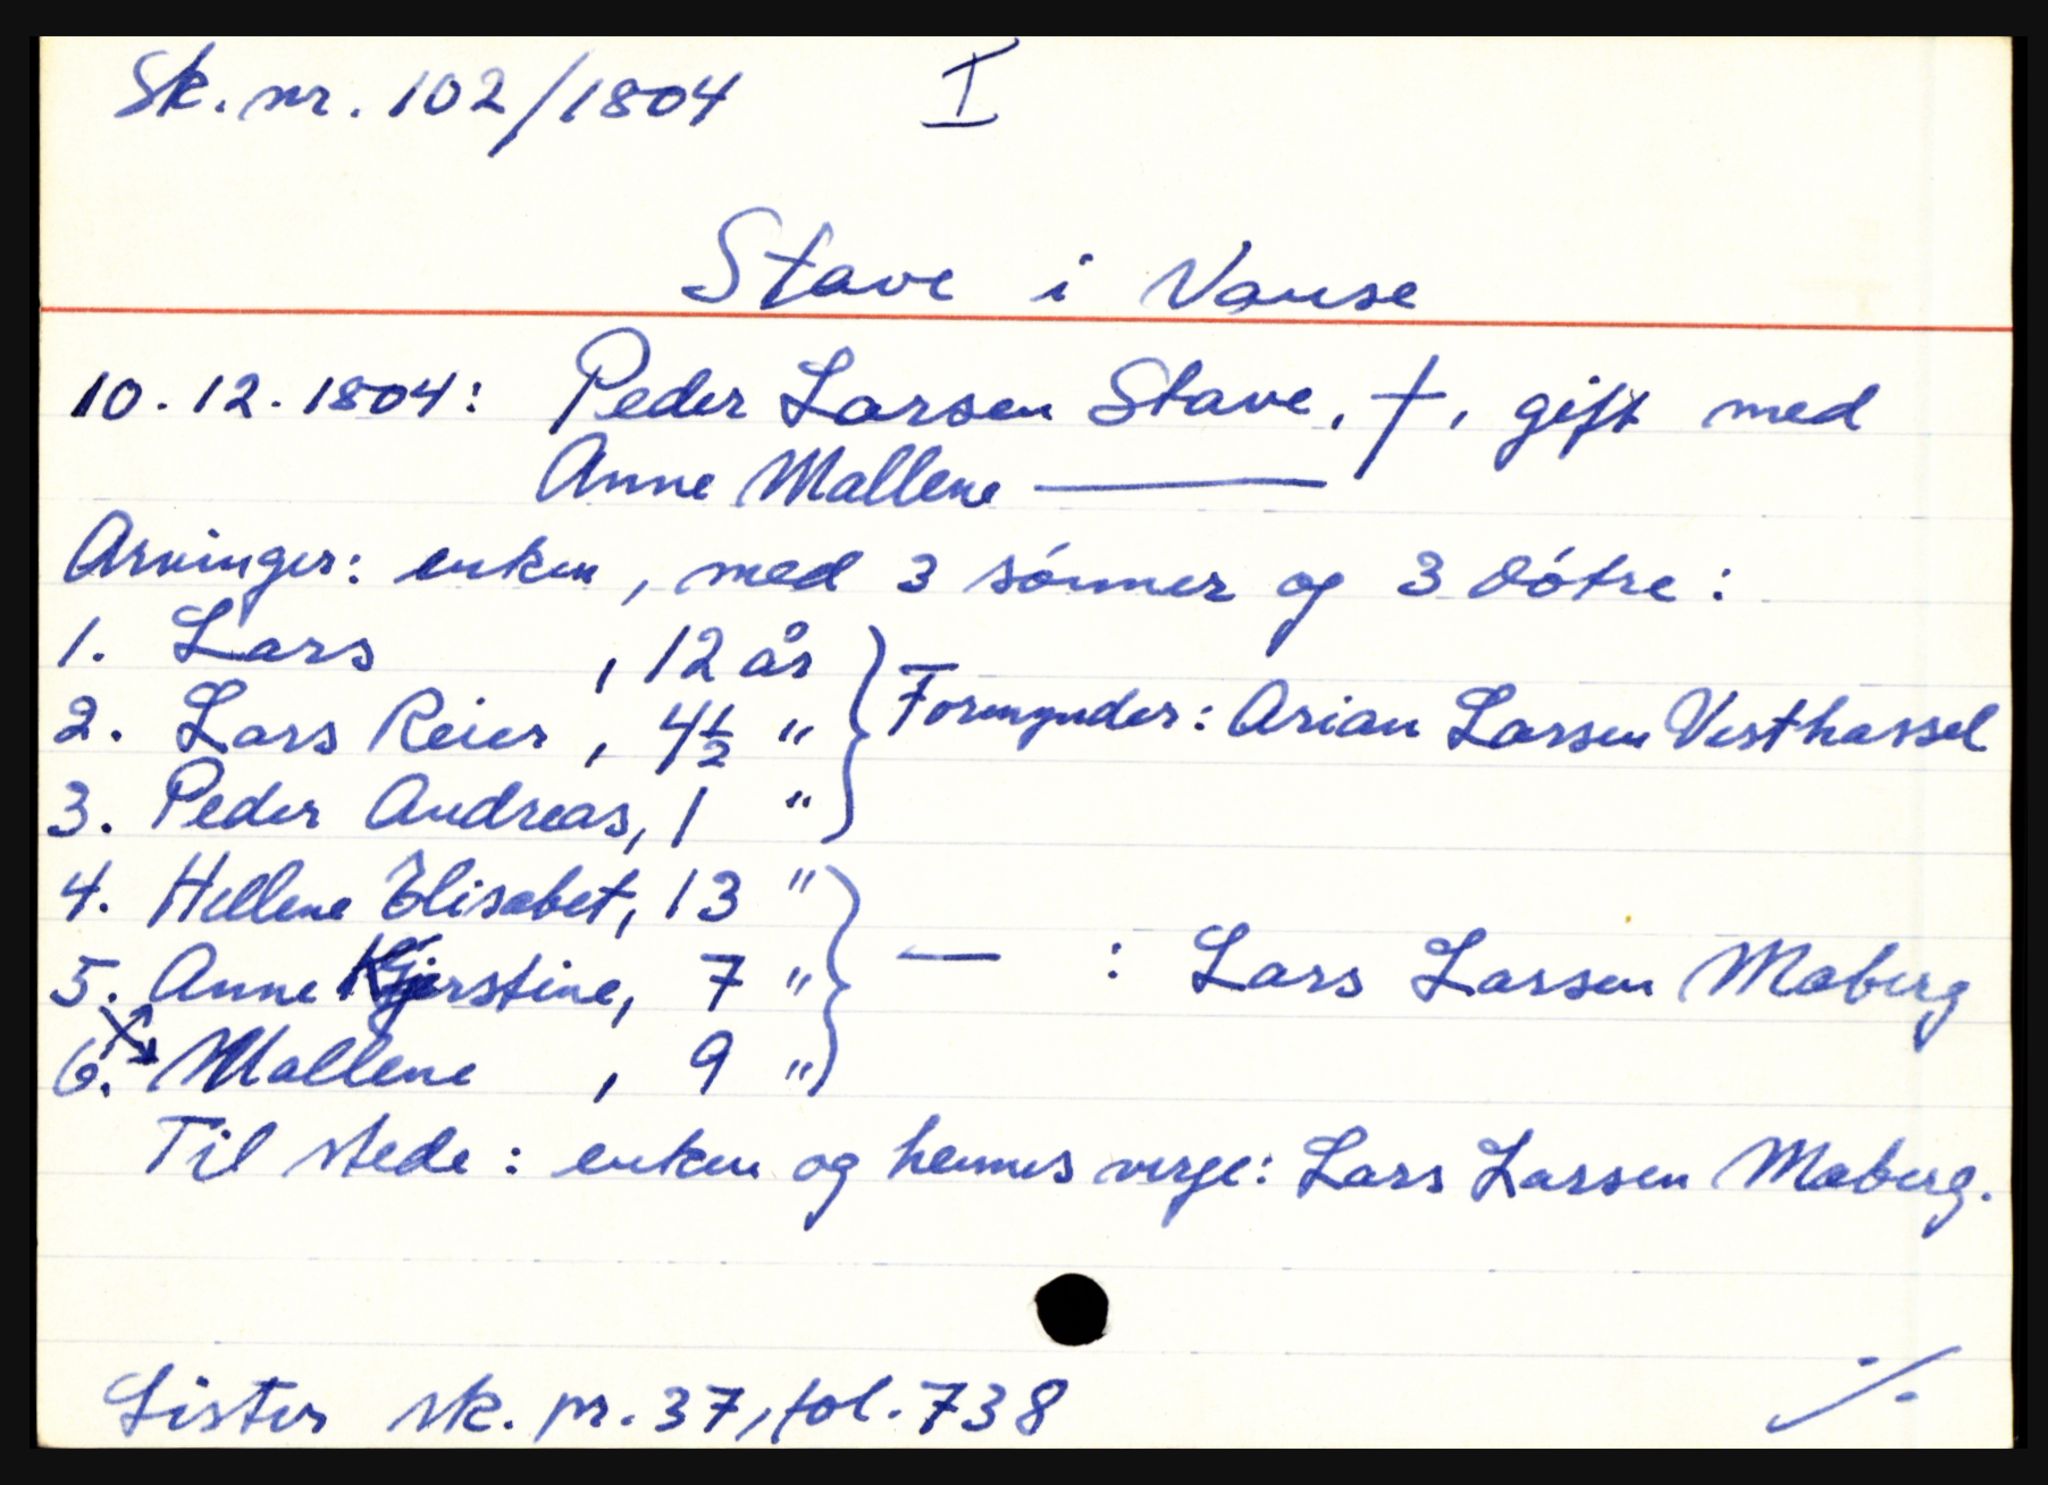 Sk. nr. 102/1804 I
Stave i Vanse
10.12.1804: Peder Larsen Stave, †, gift med
Anne Mallene ———
Arvinger: enken, med 3 sónner og 3 dótre:
1. Lars , 12 år } Formynder: Arian Larsen Vesthassel
2. Lars Reier , 4½ "
3. Peder Andreas, 1 "
4. Hellene Elisabet, 13 " } — : Lars Larsen Maberg
5. Anne Kjerstine, 7 "
6. Mallene , 9 "
Til stede: enken og hennes verge: Lars Larsen Maberg.
Lister sk. pr. 37, fol. 738 ./.